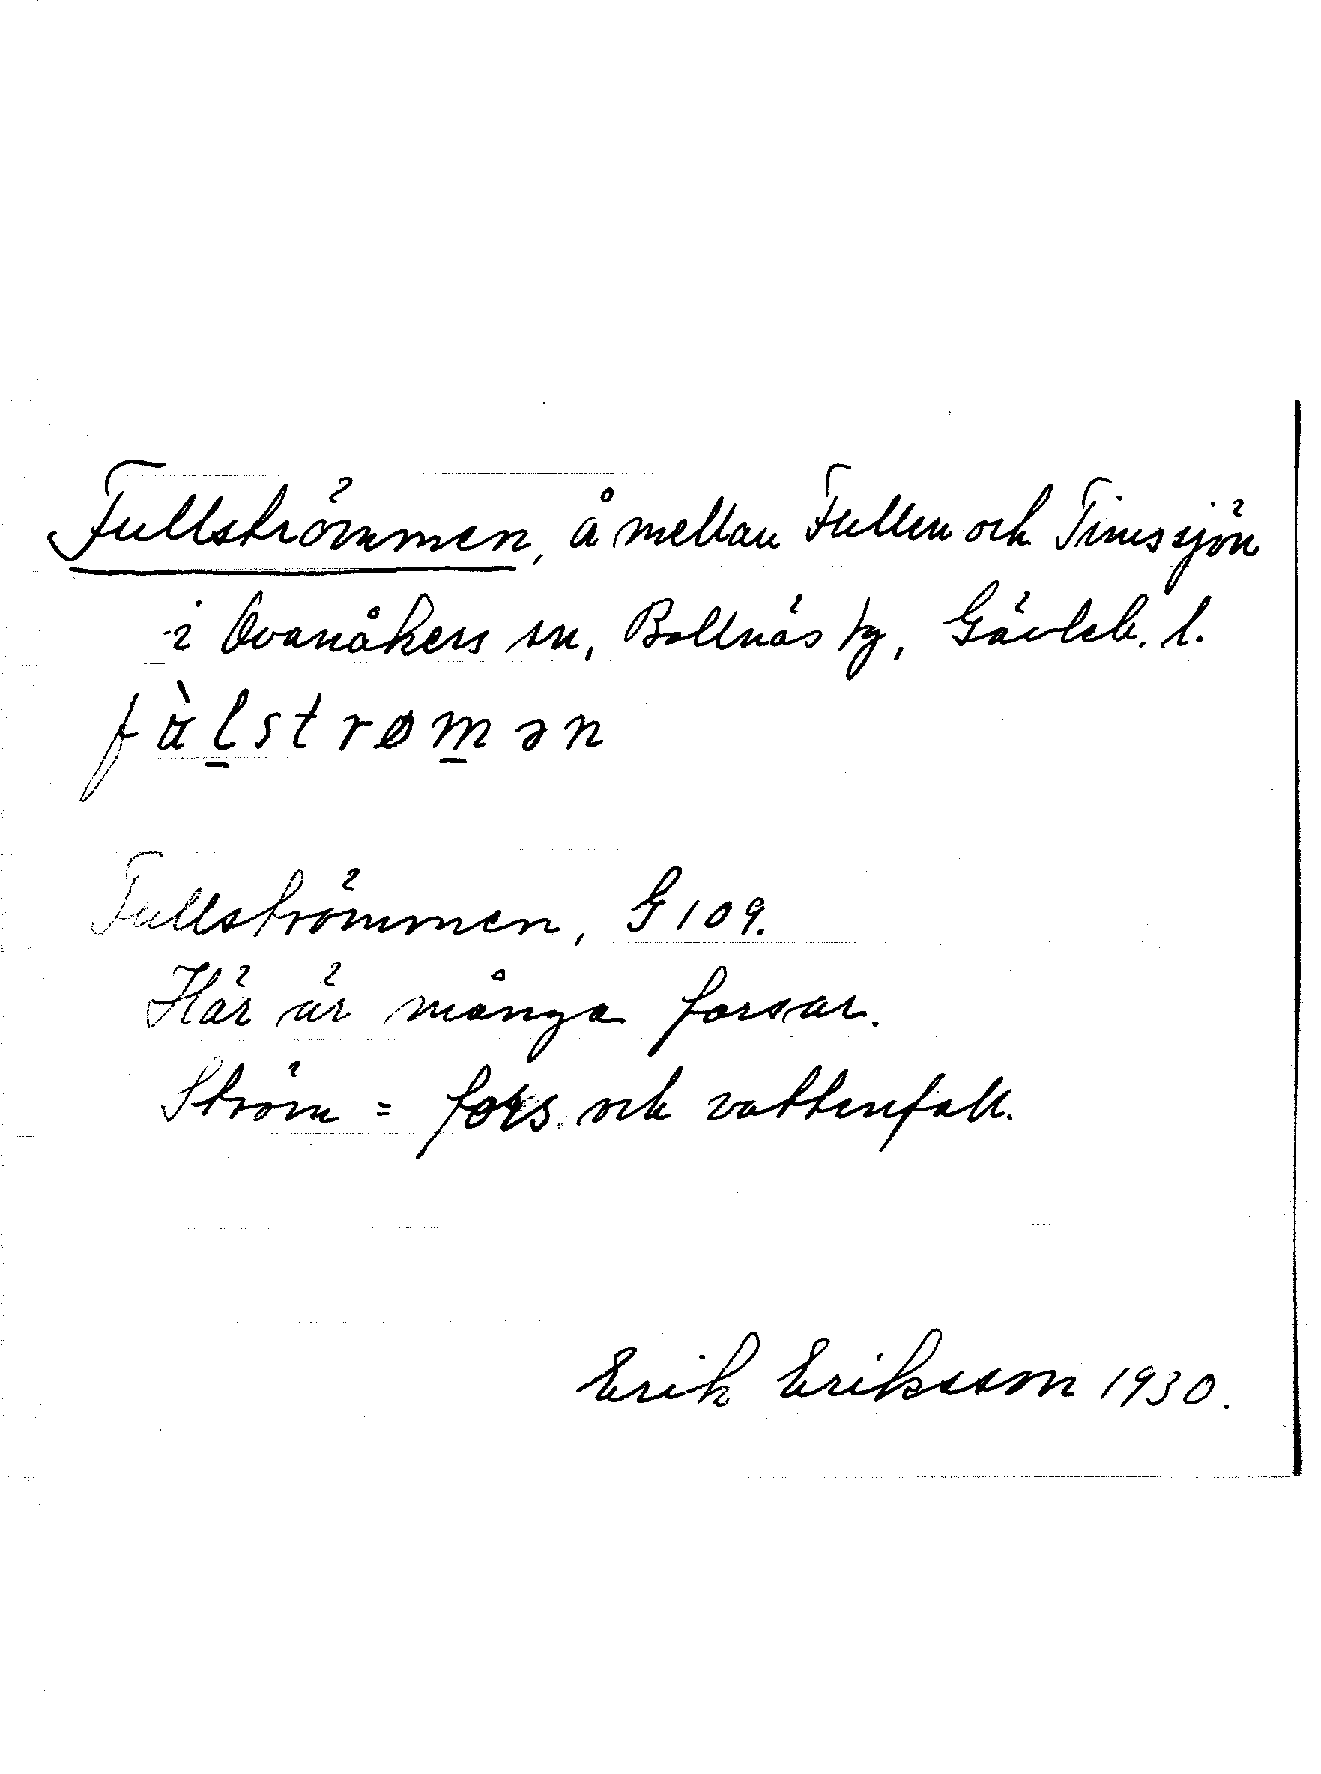 Fullströmmen, å mellan Fullen och Tinussjön
i Ovanåkers sn, Bollnäs tg, Gävleb. l.
fàl̲strøm̲ən
Fullströmmen, G 109.
Här är många forsar.
Ström = fors och vattenfall.
Erik Eriksson 1930.